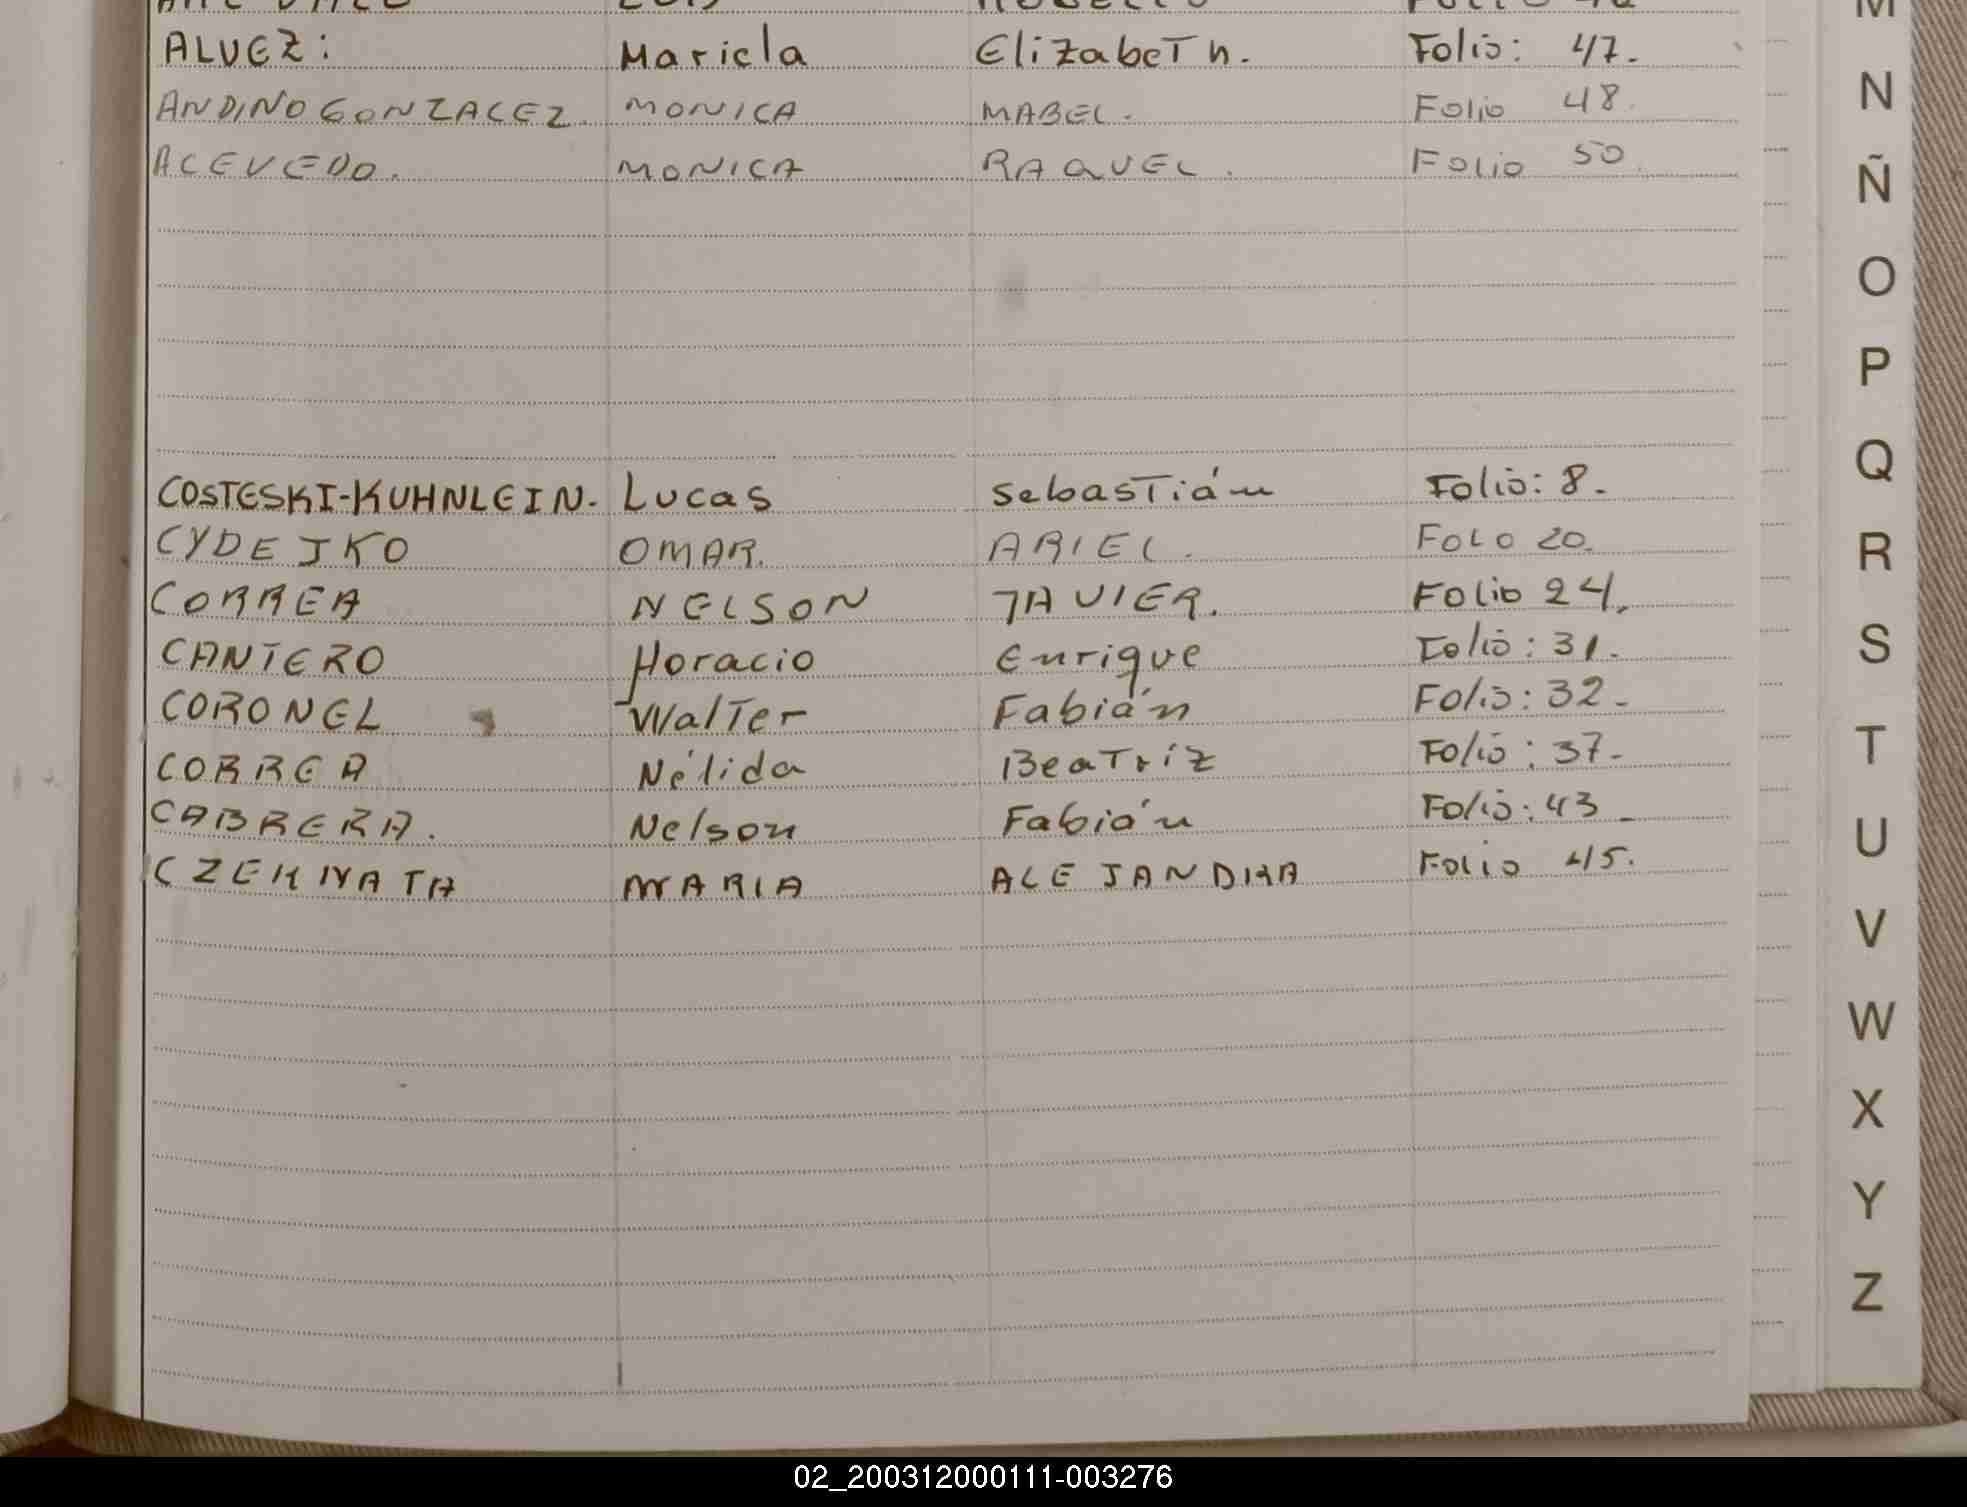 ALVEZ: Mariela ElizabeTh. Folio: 47.
ANDINO GONZALEZ. MONICA MABEL. Folio 48.
ACEVEDO. MONICA RAQUEL. Folio 50.
COSTESKI-KUHNLEIN. Lucas SebasTián Folio: 8.
CYDEJKO OMAR. ARIEL. FOLO 20.
CORREA NELSON JAVIER. Folio 24.
CANTERO Horacio Enrique Folio: 31.
CORONEL WalTer Fabián Folio: 32.
CORREA Nélida BeaTríz Folio: 37.
CABRERA. Nelson Fabián Folio: 43
MARIA ALEJANDRA Folio 45.
M
N
Ñ
O
P
Q
R
S
T
U
V
W
X
Y
Z
02_200312000111-003276